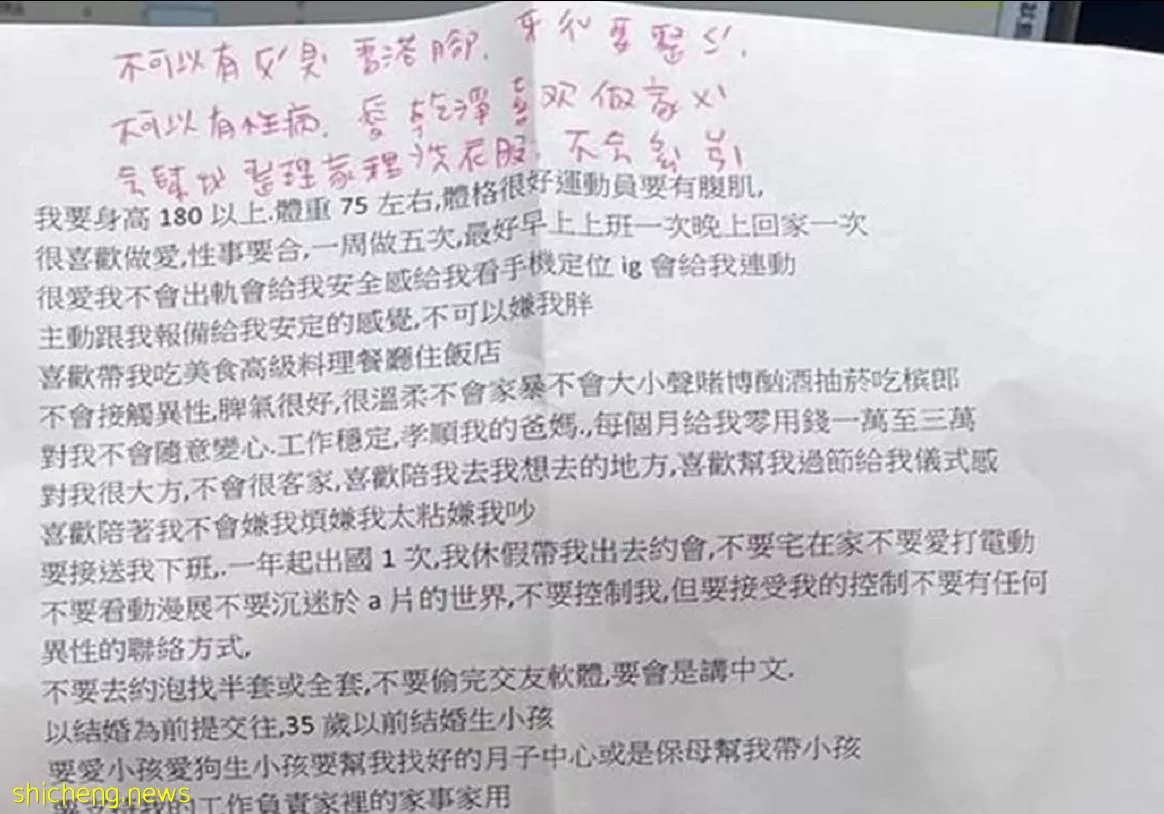 不可以有口臭 香港腳. 牙ㄔ要整ㄑㄧˊ.
不可以有性病. 愛乾淨喜欢做家ㄨˋ
會幫忙整理家裡洗衣服. 不會
我要身高 180 以上.體重 75 左右,體格很好運動員要有腹肌,
很喜歡做愛,性事要合,一周做五次,最好早上上班一次晚上回家一次
很愛我不會出軌會給我安全感給我看手機定位 ig 會給我連動
主動跟我報備給我安定的感覺,不可以嫌我胖
喜歡帶我吃美食高級料理餐廳住飯店
不會接觸異性,脾氣很好,很溫柔不會家暴不會大小聲賭博酗酒抽菸吃檳郎
對我不會隨意變心.工作穩定,孝順我的爸媽.,每個月給我零用錢一萬至三萬
對我很大方,不會很客家,喜歡陪我去我想去的地方,喜歡幫我過節给我儀式感
喜歡陪著我不會嫌我煩嫌我太粘嫌我吵
要接送我下班,.一年起出國 1 次,我休假帶我出去約會,不要宅在家不要愛打電動
不要看動漫展不要沉迷於 a 片的世界,不要控制我,但要接受我的控制不要有任何
異性的聯絡方式,
不要去約泡找半套或全套,不要偷完交友軟體,要會是講中文.
以結婚為前提交往,35 歲以前结婚生小孩
要愛小孩愛狗生小孩要幫我找好的月子中心或是保母幫我帶小孩
我的工作負責家裡的家事家用
shicheng.news